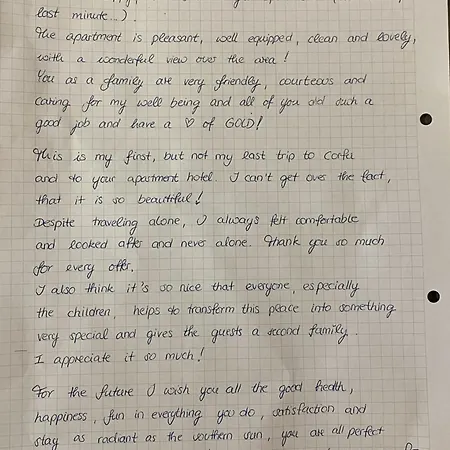 last minute...).
The apartment is pleasant, well equipped, clean and lovely,
with a wonderful view over the area!
You as a family are very friendly, courteous and
caring for my well being and all of you did such a
good job and have a ♡ of GOLD!
This is my first, but not my last trip to Corfu
and to your apartment hotel. I can't get over the fact,
that it is so beautiful!
Despite traveling alone, I always felt comfortable
and looked after and never alone. Thank you so much
for every offer.
I also think it's so nice that everyone, especially
the children, helps to transform this peace into something
very special and gives the guests a second family.
I appreciate it so much!
For the future I wish you all the good health,
happiness, fun in everything you do, satisfaction and
stay as radiant as the southern sun, you are all perfect